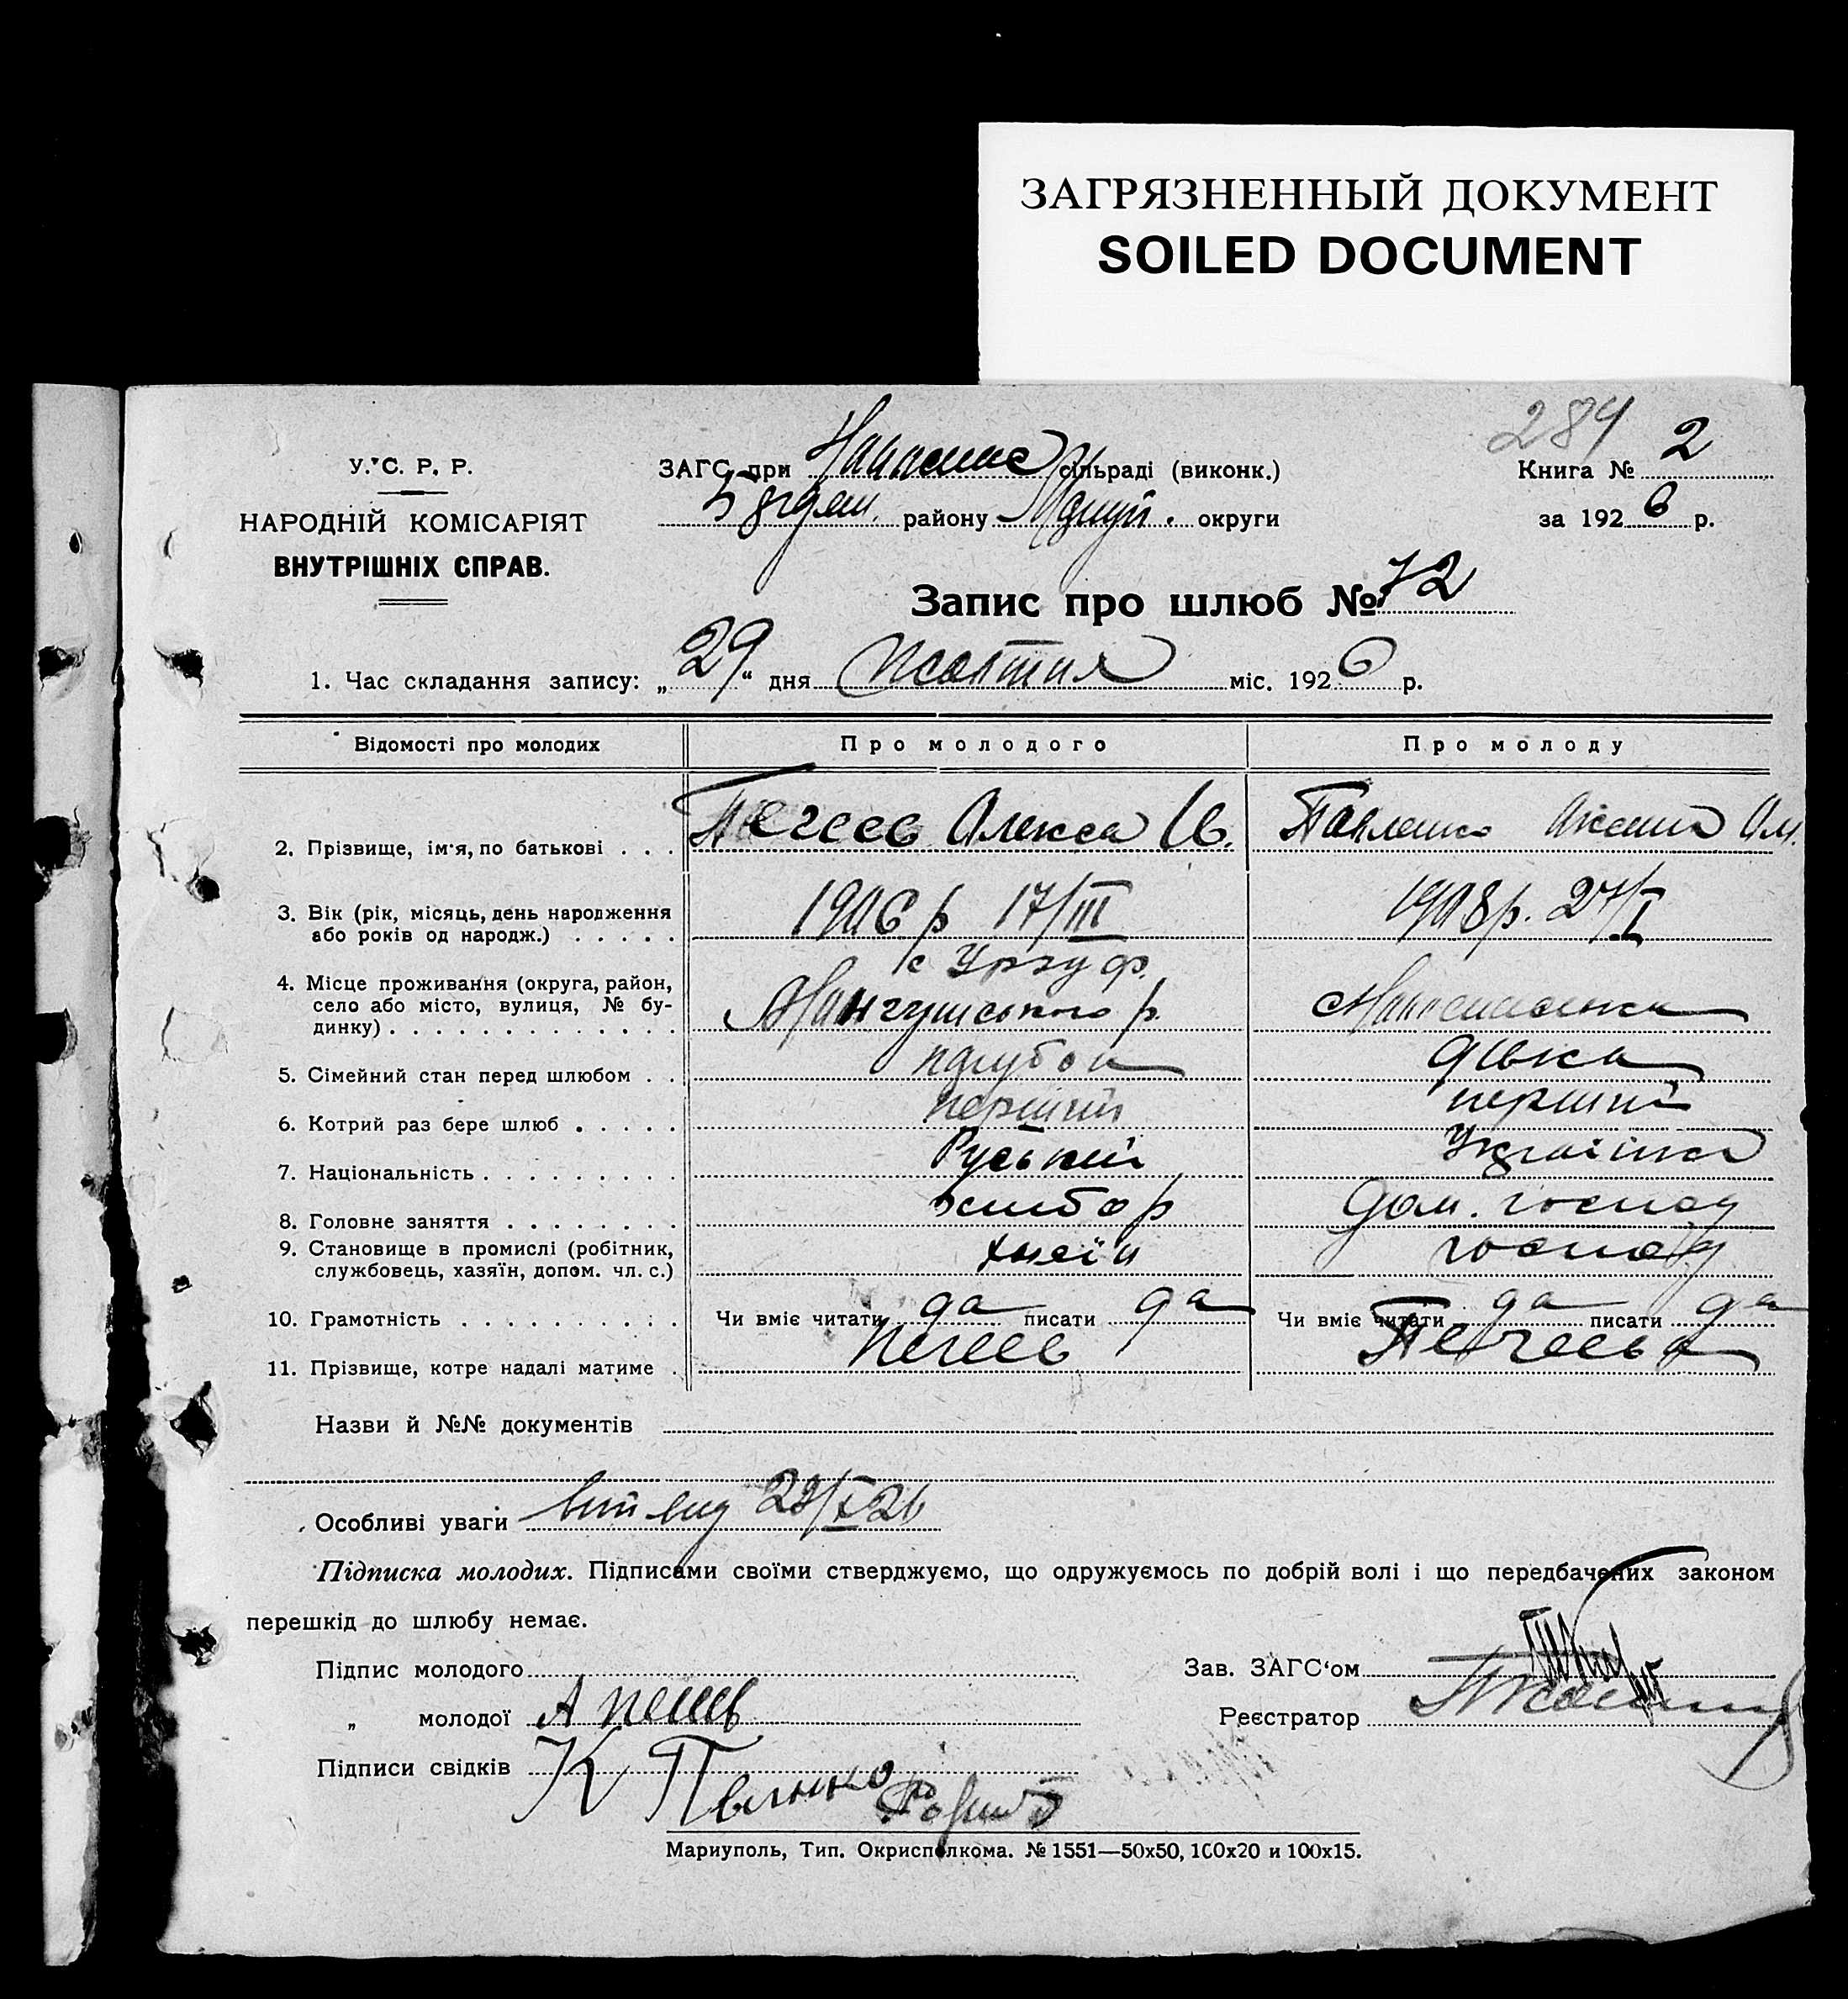 ЗАГРЯЗНЕННЫЙ ДОКУМЕНТ
SOILED DOCUMENT
284
У. С. Р. Р.
НАРОДНІЙ КОМІСАРІЯТ
ВНУТРІШНІХ СПРАВ.
ЗАГС при сільраді (виконк.)
району округи
Книга № 2
за 1926 р.
Запис про шлюб № 72
1. Час складання запису: „29“ дня жовтня міс. 1926 р.
Відомості про молодих Про молодого Про молоду
2. Прізвище, ім'я, по батькові . . . Пегеев Олекса Ів. Павленко
3. Вік (рік, місяць, день народження
або років од народж.) . . . . . 1906 р 17/III 1908 р. 27/I
4. Місце проживання (округа, район,
село або місто, вулиця, № бу-
динку) . . . . . . . . . . . . . с Урзуф. Мангушського р.
5. Сімейний стан перед шлюбом . . парубок дівка
6. Котрий раз бере шлюб . . . . . перший перший
7. Національність . . . . . . . . . Руський Українка
8. Головне заняття . . . . . . . . хлібор дом. господ
9. Становище в промислі (робітник,
службовець, хазяїн, допом. чл. с.) господ
10. Грамотність . . . . . . . . . . Чи вміє читати да писати да Чи вміє читати да писати да
11. Прізвище, котре надалі матиме . Пегеев Пегеева
Назви й №№ документів
Особливі уваги 29/X 26
Підписка молодих. Підписами своїми стверджуємо, що одружуємось по добрій волі і що передбачених законом
перешкід до шлюбу немає.
Підпис молодого Зав. ЗАГС'ом
„ молодої Реєстратор
Підписи свідків К
Мариуполь, Тип. Окрисполкома. № 1551—50x50, 100x20 и 100x15.